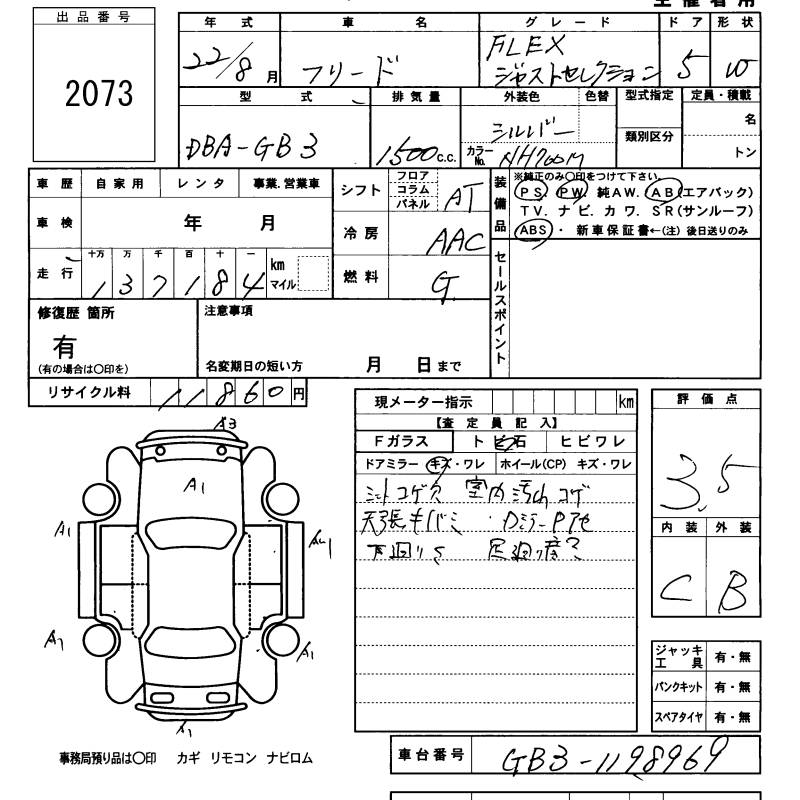 出品番号
2073
年式 車名 グレード ドア 形状
22/8月 フリード FLEX ジャストセレクション 5 W
型式 排気量 外装色 色替 型式指定 定員・積載
DBA-GB3 1500c.c. シルバー カラーNo. NH700M 類別区分 名 トン
車歴 自家用 レンタ 事業.営業車
車検 年 月
走行 十万 万 千 百 十 一 km マイル
137184
シフト フロア コラム パネル AT
冷房 AAC
燃料 G
装備品 ※純正のみ○印をつけて下さい。
PS PW 純AW. AB(エアバック)
TV. ナビ. カワ. SR(サンルーフ)
ABS・ 新車保証書←(注) 後日送りのみ
セールスポイント
修復歴 箇所 注意事項
有
(有の場合は○印を) 名変期日の短い方 月 日まで
リサイクル料 11860円
現メーター指示 km
【査定員記入】
Fガラス トビ石 ヒビワレ
ドアミラー キズ・ワレ ホイール(CP) キズ・ワレ
シートコゲ穴 室内汚れ コゲ
天張キバミ ・Dミラー
下廻りS
評価点
3.5
内装 外装
C B
A3
A1
A1
A1
A1
ジャッキ 工具 有・無
パンクキット 有・無
スペアタイヤ 有・無
事務局預り品は○印 カギ リモコン ナビロム
車台番号 GB3-1198969